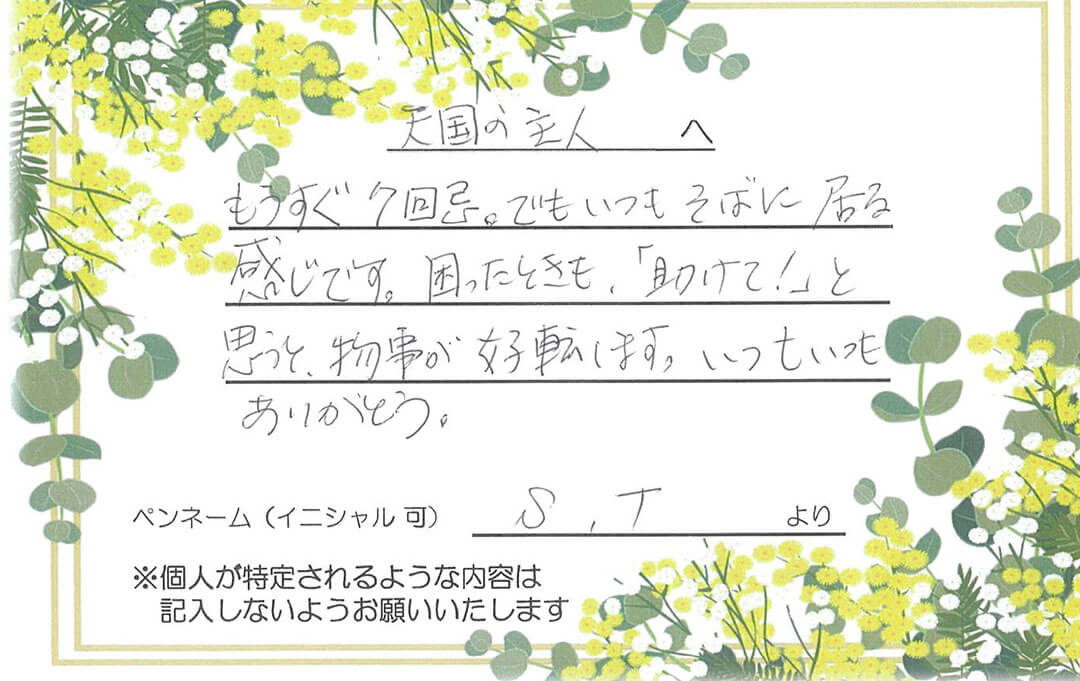 天国の主人 へ
もうすぐ7回忌。でもいつもそばに居る
感じです。困ったときも、「助けて!」と
思うと、物事が好転します。いつもいつも
ありがとう。
ペンネーム（イニシャル 可） S，T より
※個人が特定されるような内容は
記入しないようお願いいたします